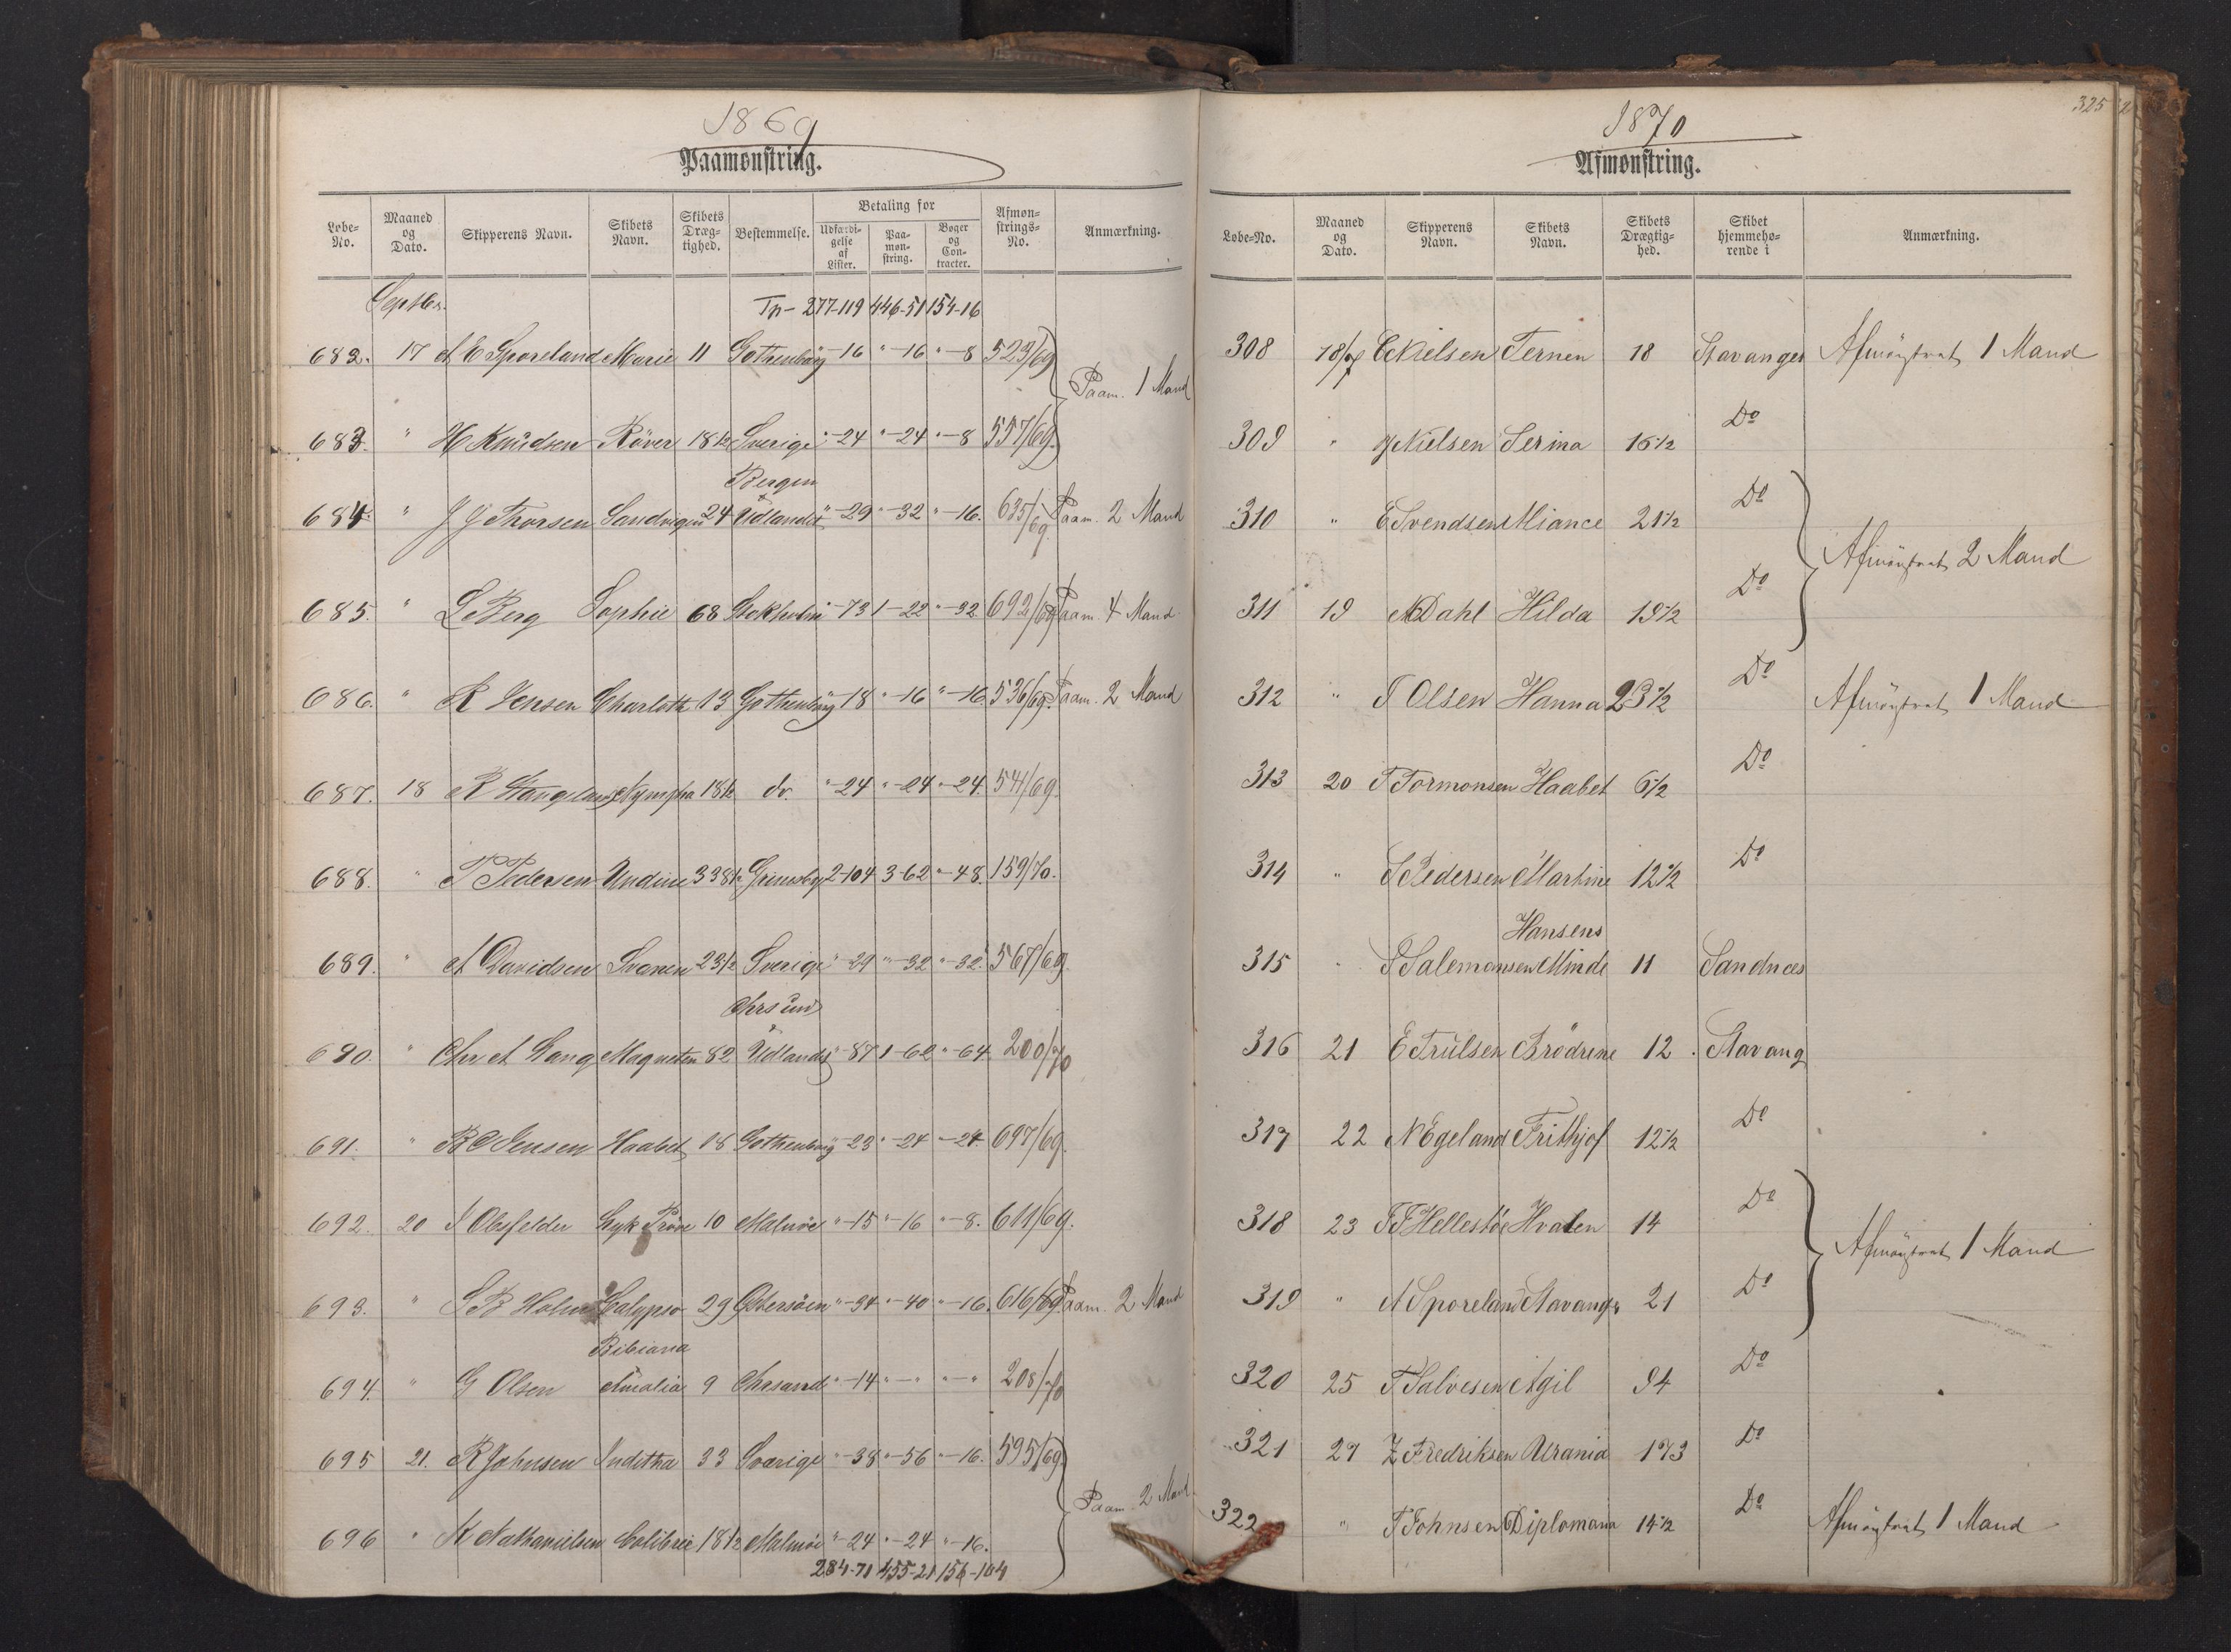 1869
Paamønstring.
Løbe-No. Maaned og Dato. Skipperens Navn. Skibets Navn. Skibets Dræg-tighed. Bestemmelse. Betaling for Udfærdi-gelse af Lister. Paa-møn-string. Bøger og Con-tracter. Afmøn-strings-No. Anmærkning.
Septbr. Tr- 277-119 446-51 154-16
682. 17 A E Sporeland Marie 11 Gothenborg -16 " -16 " -8 523/69
Paam. 1 Mand
683. " H Knudsen Röver 18 1/2 Sverige " -24 " -24 " -8 557/69.
Bergen
684. " J G Thorsen Sandvigen 24 Udlandet " -29 " -32 " -16. 635/69 Paam. 2 Mand
685. " L Berg Sophie 68 Stokholm -73 1-22 " -32 692/69 Paam. 4 Mand
686. " R Jensen Charlotte 13 Gothenborg 18 " -16 " -16. 536/69. Paam. 2 Mand
687. 18 R Haugland Nympha 18 1/2 do. " -24 " -24 " -24. 541/69.
688. " P Pedersen Undine 338 1/2 Grimsby 2-104 3-62 " -48. 159/70.
689. " A Davidsen Svanen 23 1/2 Sverige " 29 " -32 " -32. 567/69.
Chrsund
690. " Chr A Lang Magneten 82 Udlandet " -87 1-62 " -64 200/70
691. " B C Jensen Haabet 18 Gothenborg -23 " -24 " -24. 697/69.
692. 20 A Obsfelder Lyk Pröve 10 Malmöe " -15 " -16 " -8. 611/69.
693. " S B Holm Calypso 29 Östersöen " -34 " -40 " -16. 616/69 Paam. 2 Mand
Bibiana
694. " G Olsen Amalia 9 Chrsand " -14 " - " " - " 208/70
695 21. R Johnsen Juditha 33 Sverige " -38 " -56 " -16. 595/69
Paam. 2 Mand.
696 " N Nathanielsen Colibrie 18 1/2 Malmöe " -24 " -24 " -16.
284-71 455-21 156-104
325
1870
Afmønstring.
Løbe-No. Maaned og Dato. Skipperens Navn. Skibets Navn. Skibets Drægtig-hed. Skibet hjemmehø-rende i Anmærkning.
308 18/7 C Nielsen Ternen 18 Stavanger Afmönstret 1 Mand
309 " Nielsen Serina 16 1/2 Do
310 " E Svendsen Aliance 21 1/2 Do
Afmönstret 2 Mand
311 19 N Dahl Hilda 19 1/2 Do
312 " T Olsen Hanna 23 1/2 Do Afmönstret 1 Mand
313 20 T Tormonsen Haabet 6 1/2 Do
314 " S Pedersen Martine 12 1/2 Do
Hansens
315 " S Salemonsen Minde 11 Sandnces
316 21 E Trulsen Brödrene 12 Stavang
317 22 N Egeland Frithjof 12 1/2 Do
318 23 T T Hellestöe Hvalen 14 Do
Afmönstret 1 Mand
319 " A Sporeland Stavanger 21 Do
320 25 T Salvesen Agil 94 Do
321 27 Z Fredriksen Urania 173 Do
322 " T Johnsen Diplomana 14 1/2 Do Afmönstret 1 Mand